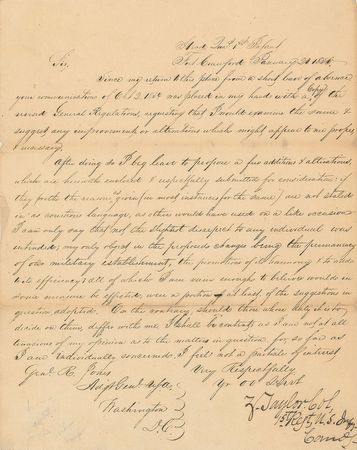 Head Qrs 1st Infant
Fort Crawford January 21
Sir,
Since my return to this place from a short leave of absence
your communication of Oct 2 was placed in my hand with a Copy of the
revised General Regulations, requesting that I would examine the same &
suggest any improvements or alterations which might appear to me proper
& necessary.
After doing so I beg leave to propose a few additions & alterations,
which are herewith enclosed & respectfully submitted for consideration; if
they (or the reasons given in most instances for the same) are not stated
in as courteous language, as others would have used on a like occasion
I can only say that not the slightest disrespect to any individual was
intended; my only object in the proposed changes being the permanency
of our military establishment, the promotion of its harmony & to add
to its efficiency; all of which I am vain enough to believe would in
some measure be effected, were a portion at least, of the suggestions in
question adopted. On the contrary, should those whose duty it is to
decide on them, differ with me, I shall be content; as I am not at all
tenacious of my opinion as to the matters in question for so far as
I am individually concerned, I feel not a particle of interest
Genl. R. Jones
Very Respectfully
Adjt Genl. USA,
Yr Ob Servt
Washington
Z. Taylor Col,
D. C.
1st Regt, U.S. Infy
Comd